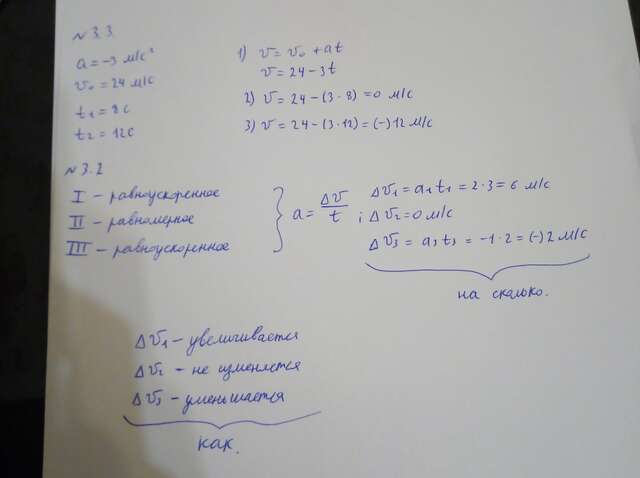 № 3.3
a = -3 м/с²
v₀ = 24 м/с
t₁ = 8с
t₂ = 12с
1) v = v₀ + at
v = 24 - 3t
2) v = 24 - (3·8) = 0 м/с
3) v = 24 - (3·12) = (-)12 м/с
№ 3.2
I - равноускоренное
II - равномерное
III - равноускоренное
a = Δv/t ;
Δv₁ = a₁t₁ = 2·3 = 6 м/с
Δv₂ = 0 м/с
Δv₃ = a₃t₃ = -1·2 = (-)2 м/с
на сколько.
Δv₁ - увеличивается
Δv₂ - не изменяется
Δv₃ - уменьшается
как.